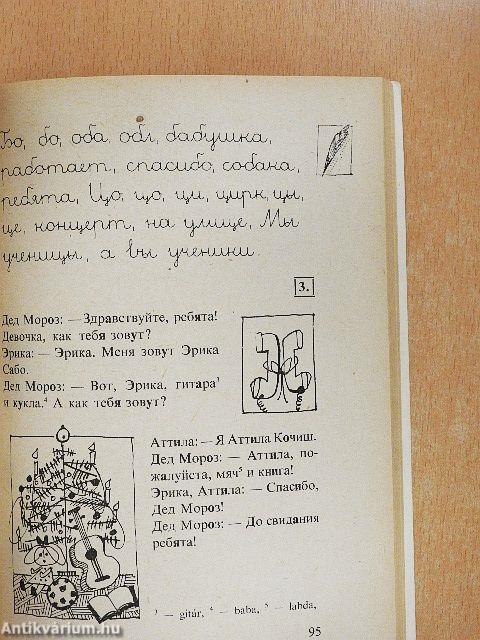 Бо, бо, оба, обл, бабушка,
работает, спасибо, собака,
ребята, Цо, цо, ци, цирк, цы,
це, концерт, на улице, Мы
ученицы, а вы ученики.
3.
Дед Мороз: — Здравствуйте, ребята!
Девочка, как тебя зовут?
Эрика: — Эрика. Меня зовут Эрика
Сабо.
Дед Мороз: — Вот, Эрика, гитара³
и кукла.⁴ А как тебя зовут?
Аттила: — Я Аттила Кочиш.
Дед Мороз: — Аттила, по-
жалуйста, мяч⁵ и книга!
Эрика, Аттила: — Спасибо,
Дед Мороз!
Дед Мороз: — До свидания
ребята!
³ — gitár, ⁴ — baba, ⁵ — labda,
95
Antikvárium.hu